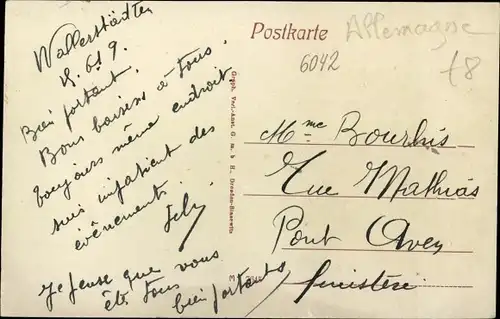 Wallerstädten
Bien portant,
Bons baisers à tous,
toujours même endroit
suis impatient des
évènements.
Je pense que
êtes tous vous
bien portants
Postkarte
Allemagne
6042
Graph. Verl.-Anst. G. m. b. H., Dresden-Blasewitz
Mme Bourhis
Rue Mathias
Pont Aven
finistère